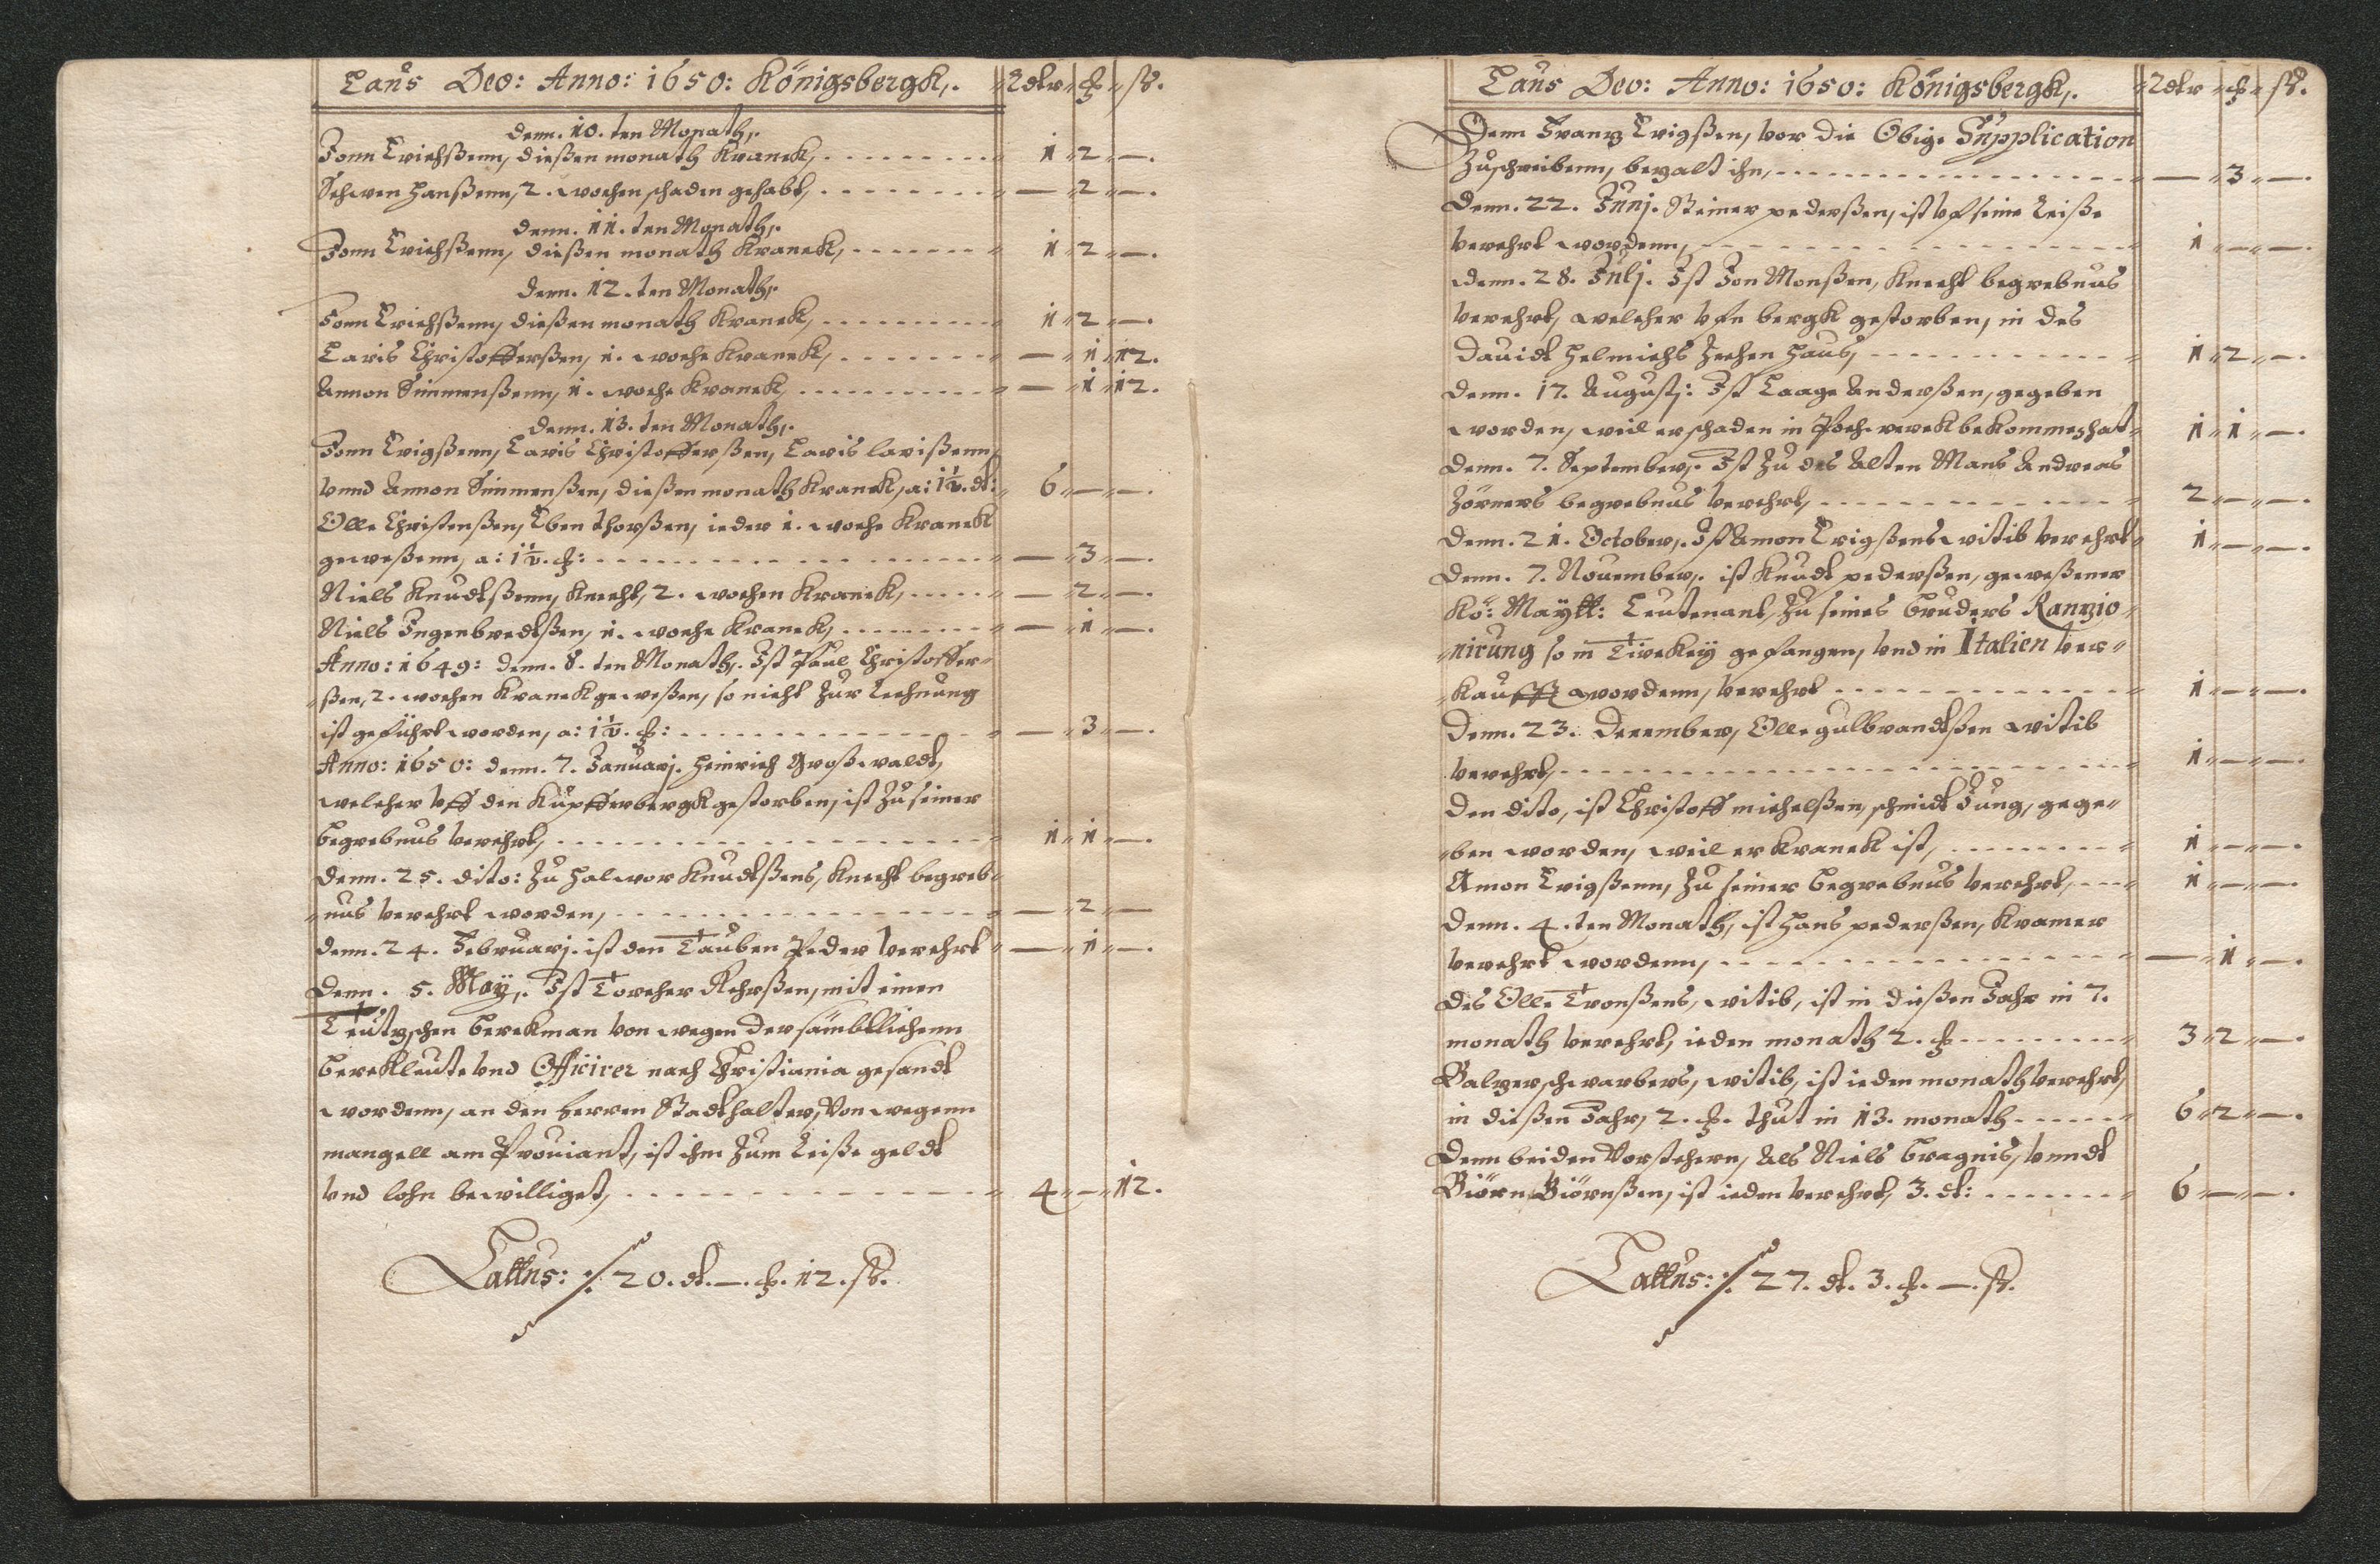 Laus Deo: Anno: 1650: Königsbergk,. Rdlr ₰ ß.
Denn. 10. ten Monath,.
Jonn Erichßenn, dießen monath Kranck, 1 2 —.
Schwen Hanßenn, 2. wochen schaden gehabt, — 2 —.
Denn. 11. ten Monath,.
Jonn Erichßenn, dießen monath Kranck, 1 2 —.
Denn. 12. ten Monath,.
Jonn Erichßenn, dießen monath Kranck, 1 2 —.
Laris Christofferßen, 1. woche Kranck, — 1 12.
Ammon Simmenßenn, 1. woche Kranck, — 1 12.
Denn. 13. ten Monath,.
Jonn Erigßenn, Laris Christofferßen, Laris larißenn,
vnnd Ammon Simmenßen, dießen monath Kranck, a: 1½. dl: 6 — —.
Olle Christenßen, Eben thorßen, ieder 1. woche Kranck
geweßenn, a: 1½. ₰: — 3 —.
Niels Knudtßenn, Knecht, 2. wochen Kranck, — 2 —.
Niels Ingenbredtßen, 1. woche Kranck, — 1 —.
Anno: 1649: denn. 8. ten Monath,. Ist Paul Christoffer-
ßen, 2. wochen Kranck geweßen, so nicht zur Rechnung
ist geführt worden, a: 1½. ₰: — 3 —.
Anno: 1650: denn. 7. Januarj. Heinrich Großwaldt,
welcher vff den Kupfferbergk gestorben, ist zu seiner
begrebnus verehrt, 1 1 —.
Denn. 25. dito: zu Halwor Knudtßens, Knecht begreb-
nus verehrt worden, — 2 —
Denn. 24. Februarj. ist den Tauben Peder verehrt — 1 —.
Denn. 5. Maÿ,. Ist Torcher Rehrßen, mit einen
Teutzschen berckman von wegen der sämbtlichenn
berckleute vnd Officirer nach Christiania gesandt
wordenn, an den herren Stadthalter, von wegenn
mangell am Prouiant, ist ihm zum Reiße geldt
vnd lohn bewilliget, 4 — 12.
Lattus: ./. 20. dl. —. ₰. 12. ß.
Laus Deo: Anno: 1650: Königsbergk,. Rdlr ₰ ß.
Denn Frantz Erigßen, vor die Obige Supplication
zuschreibenn, bezalt ihn, — 3 —.
Denn. 22. Junj. Steiner pederßen, ist vf seine Reiße
verehrt wordenn, 1 — —.
Denn. 28. Julj. Ist Jon Monßen, Knecht begrebnus
verehrt, welcher vfn bergk gestorben, in des
Dauidt Helmichs Zechen Haus, 1 2 —.
Denn. 17. Augustj: Ist Laage Anderßen, gegeben
worden, weil er schaden in Pochwerck bekommen hat 1 1 —.
Denn. 7. September,. Ist zu des Alten Mans Andreas
Zörners begrebnus verehrt, 2 — —.
Denn. 21. October,. Ist Amon Erigßens witib verehrt 1 — —.
Denn. 7. Nouember,. ist Knudt pederßen, geweßener
Kö: Maÿtt: Leutenant, zu seines bruders Ranzio-
nirung so in Türckeÿ gefangen, vnd in Italien ver-
kaufft wordenn, verehrt 1 — —.
Denn. 23. December, Olle gulbrandtßen witib
verehrt, 1 — —.
Den dito, ist Christoff michelßen, schmidt Jung, gege-
ben worden, weil er Kranck ist, 1 — —.
Amon Erigßenn, zu seiner begrebnus verehrt, 1 — —.
Denn. 4. ten Monath, ist Hans pederßen, Kramer
verehrt wordenn, — 1 —.
Des Olle Tronßens, witib, ist in dießen Jahr in 7.
monath verehrt, ieden monath 2. ₰ 3 2 —.
Balzer schwarbers, witib, ist ieden monath verehrt,
in dießen Jahr, 2. ₰. thut in 13. monath 6 2 —.
Denn beiden Vorstehern, Als Niels bragnis, vnndt
Biörn Biörnßen, ist ieden verehrt, 3. dl: 6 — —.
Lattus: ./. 27. dl. 3. ₰. —. ß.